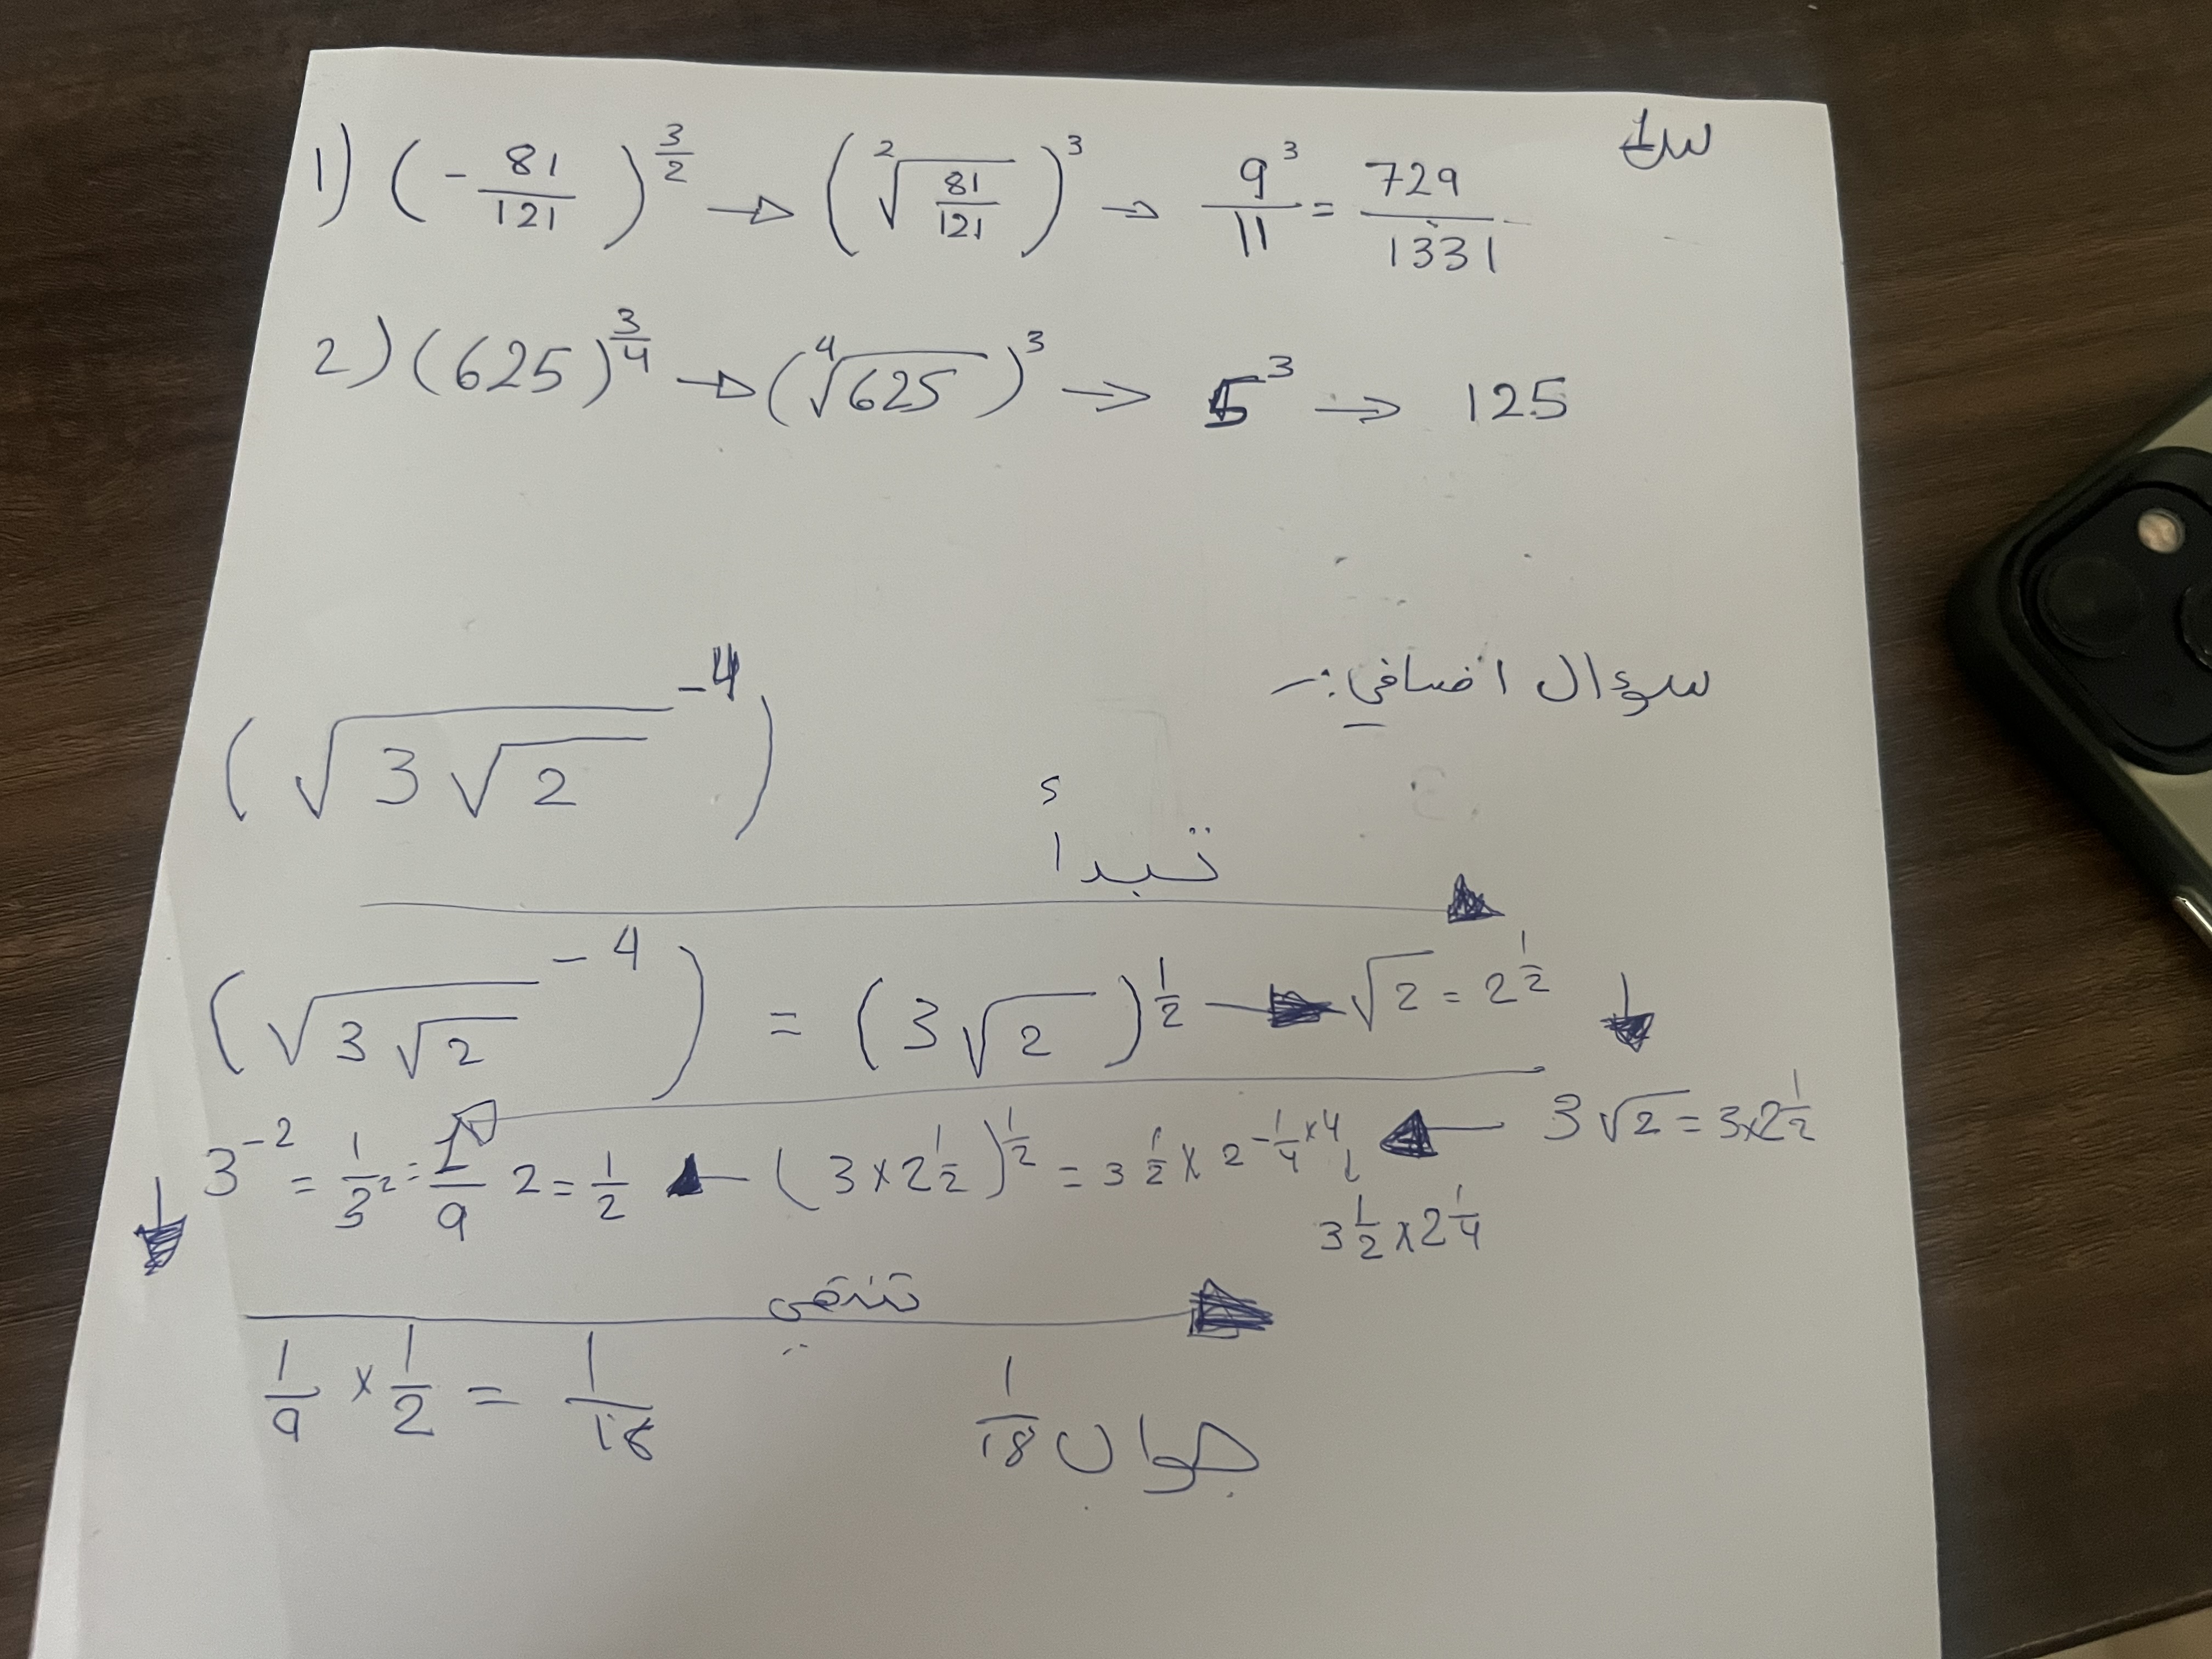 س1
1) (-81/121)^(3/2) → (²√(81/121))³ → 9³/11 = 729/1331
2) (625)^(3/4) → (⁴√625)³ → 5³ → 125
سوال اضافي:-
(√(3√2)^-4)
تبدأ
(√(3√2)^-4) = (3√2)^(1/2) → √2 = 2^(1/2) ↓
3√2 = 3×2^(1/2)
← (3×2^(1/2))^(1/2) = 3^(1/2) × 2^(-1/4×4) ←
3^(1/2) × 2^(1/4)
↓ 3^-2 = 1/3² = 1/9 2 = 1/2
تنتهي
1/9 × 1/2 = 1/18
جواب 1/18